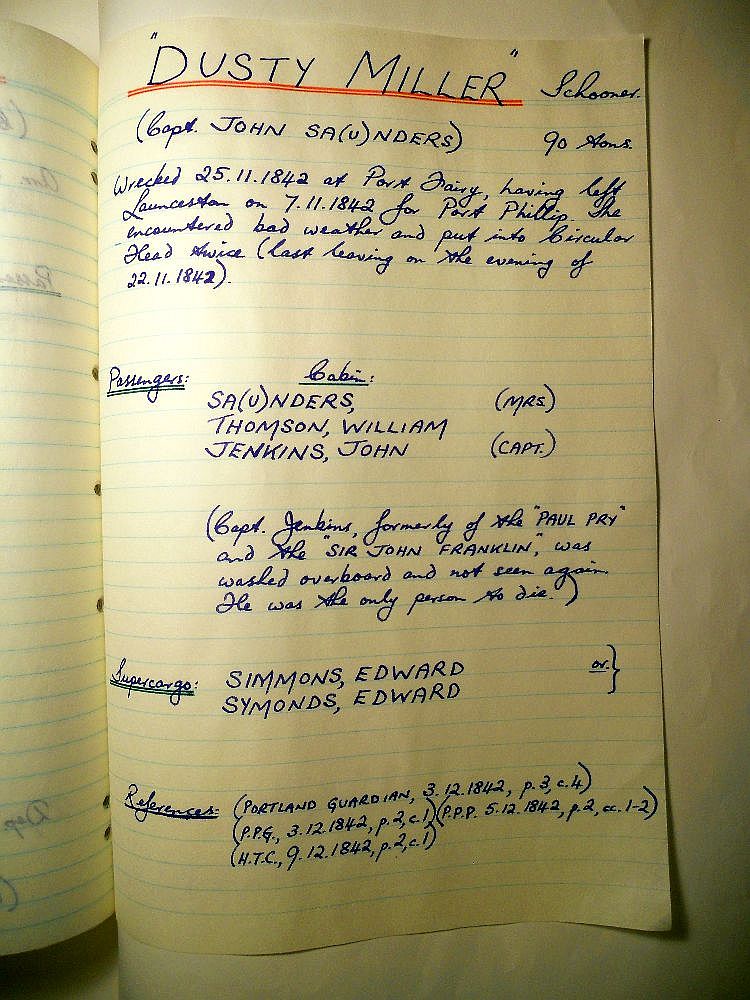 "DUSTY MILLER" Schooner.
(Capt. JOHN SA(U)NDERS) 90 tons.
Wrecked 25.11.1842 at Port Fairy, having left
Launceston on 7.11.1842 for Port Phillip. She
encountered bad weather and put into Circular
Head twice (last leaving on the evening of
22.11.1842).
Passengers: Cabin:
SA(U)NDERS, (MRS.)
THOMSON, WILLIAM
JENKINS, JOHN (CAPT.)
(Capt. Jenkins, formerly of the "PAUL PRY"
and the "SIR JOHN FRANKLIN", was
washed overboard and not seen again.
He was the only person to die.)
Supercargo: SIMMONS, EDWARD or }
SYMONDS, EDWARD
References: (PORTLAND GUARDIAN, 3.12.1842, p.3, c.4)
(P.P.G., 3.12.1842, p.2, c.1) (P.P.P. 5.12.1842, p.2, cc.1-2)
(H.T.C., 9.12.1842, p.2, c.1)